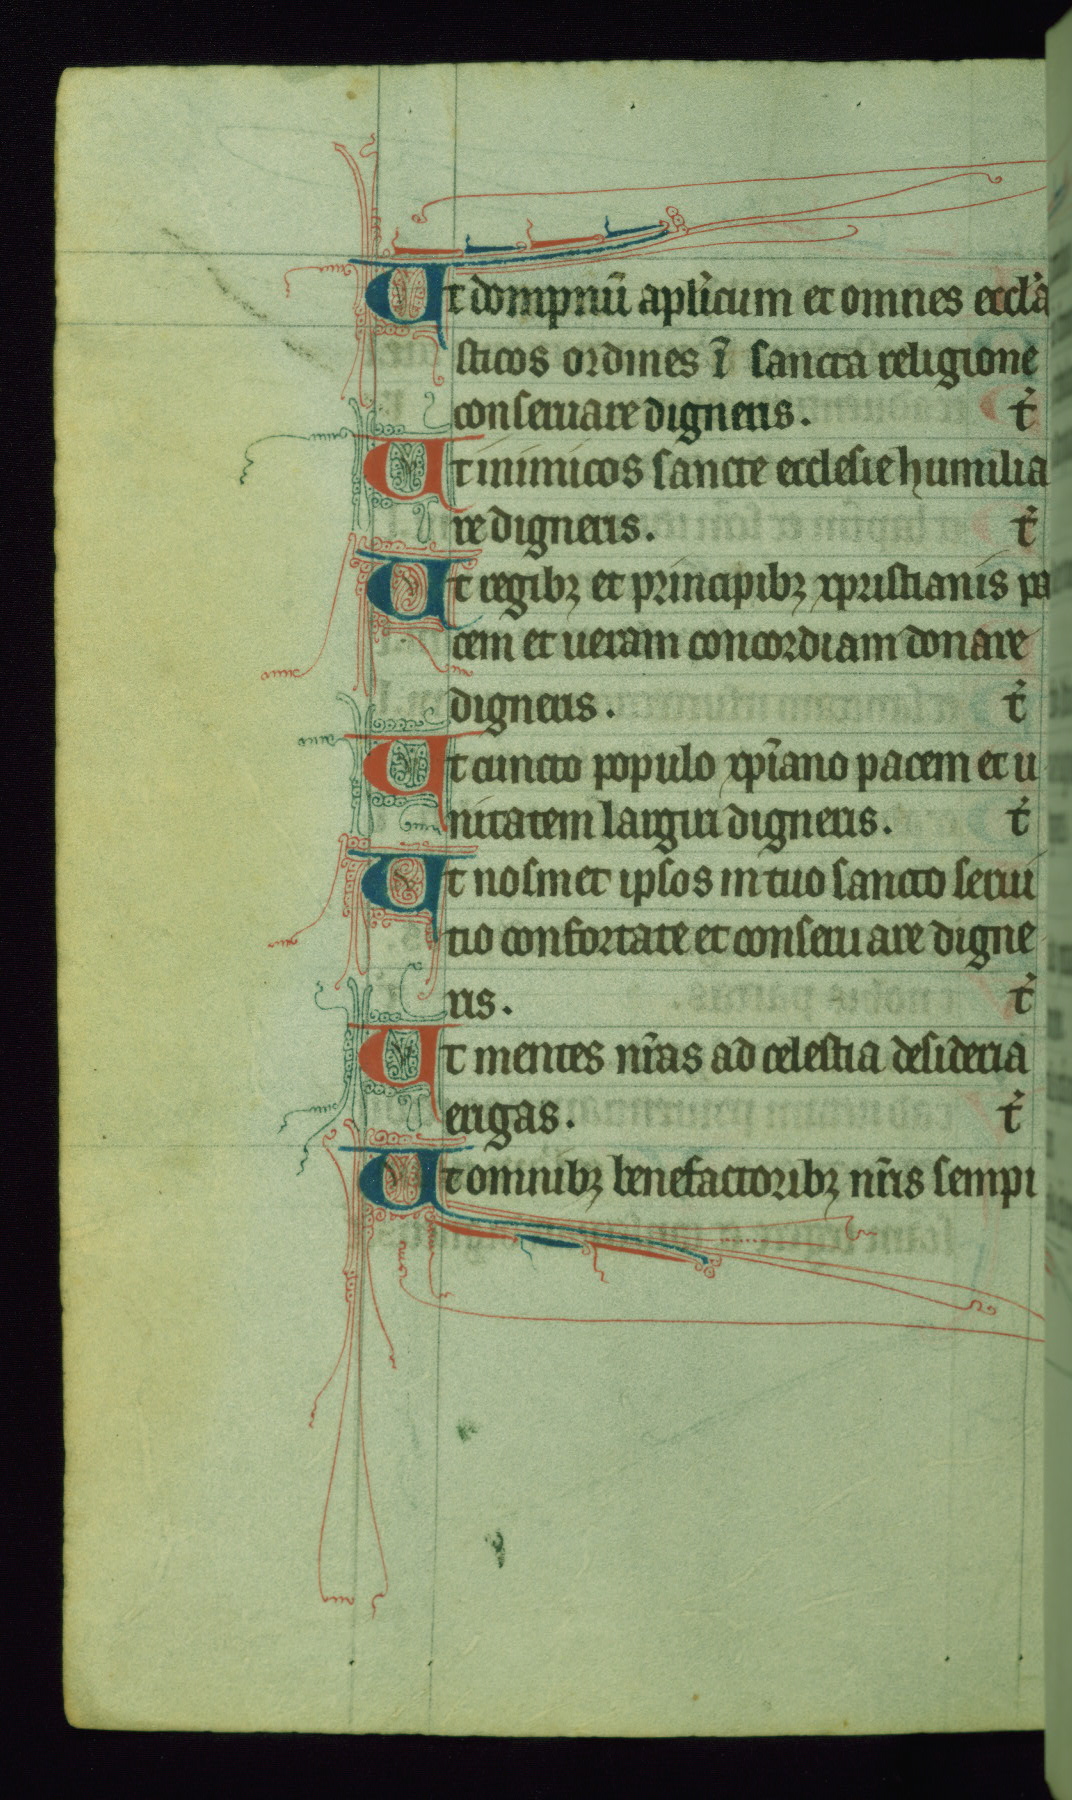 Ut dompnu̅ apl'icum et omnes eccl'a
sticos ordines i̅ sancta religione
conseruare digneris. t'
Ut inimicos sancte ecclesie humilia
re digneris. t'
Ut regibꝫ et principibꝫ xpristianis pa
cem et ueram concordiam donare
digneris. t'
Ut cuncto populo xp̅iano pacem et u
nitatem largiri digneris. t'
Ut nosmet ipsos in tuo sancto serui
tio confortare et conseruare digne
ris. t'
Ut mentes nr̅as ad celestia desideria
erigas. t'
Ut omnibꝫ benefactoribꝫ nr̅is sempi